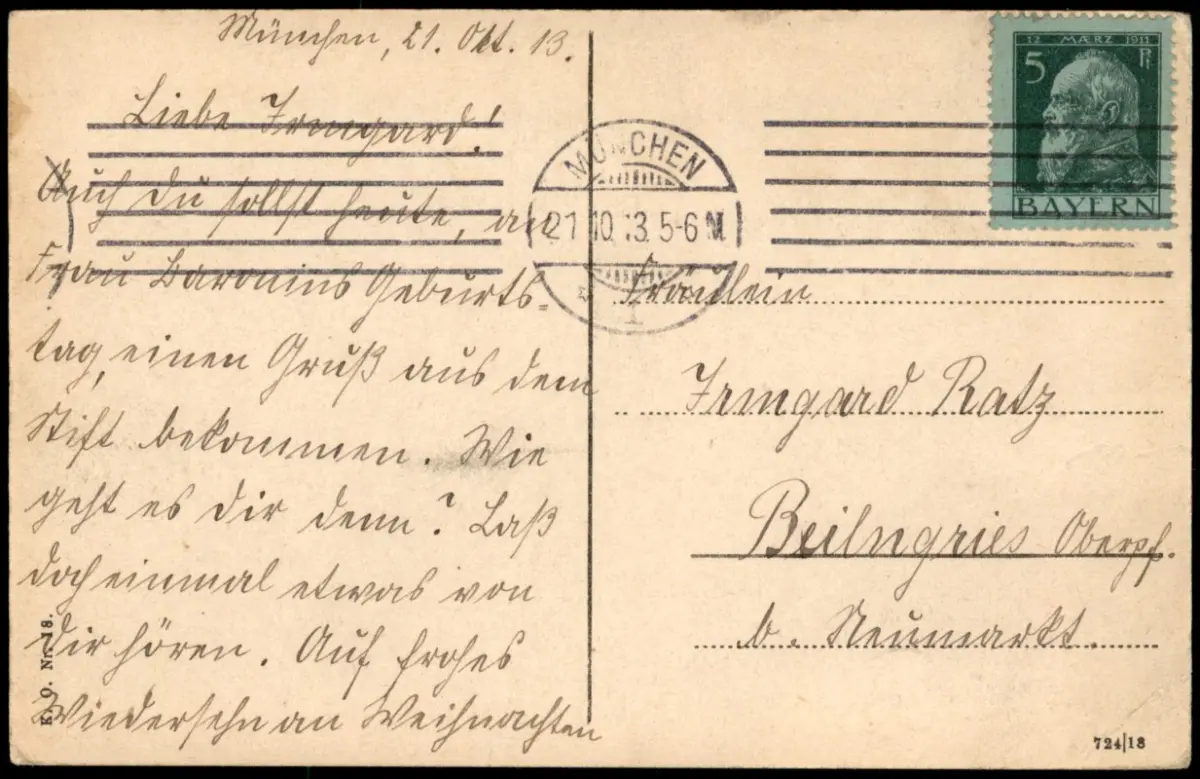 München, 21. Okt. 13.
Liebe Irmgard!
Auch du sollst heute, an
Frau Baronins Geburts-
tag, einen Gruß aus dem
Stift bekommen. Wie
geht es dir denn? Laß
doch einmal etwas von
dir hören. Auf frohes
Wiedersehn an Weihnachten
K. O. Nr. 18.
MÜNCHEN
21.10.13. 5-6 N.
1
12 MÆRZ 1911
5 Pf
BAYERN
Fräulein
Irmgard Ratz
Beilngries Oberpf.
b. Neumarkt.
724|18